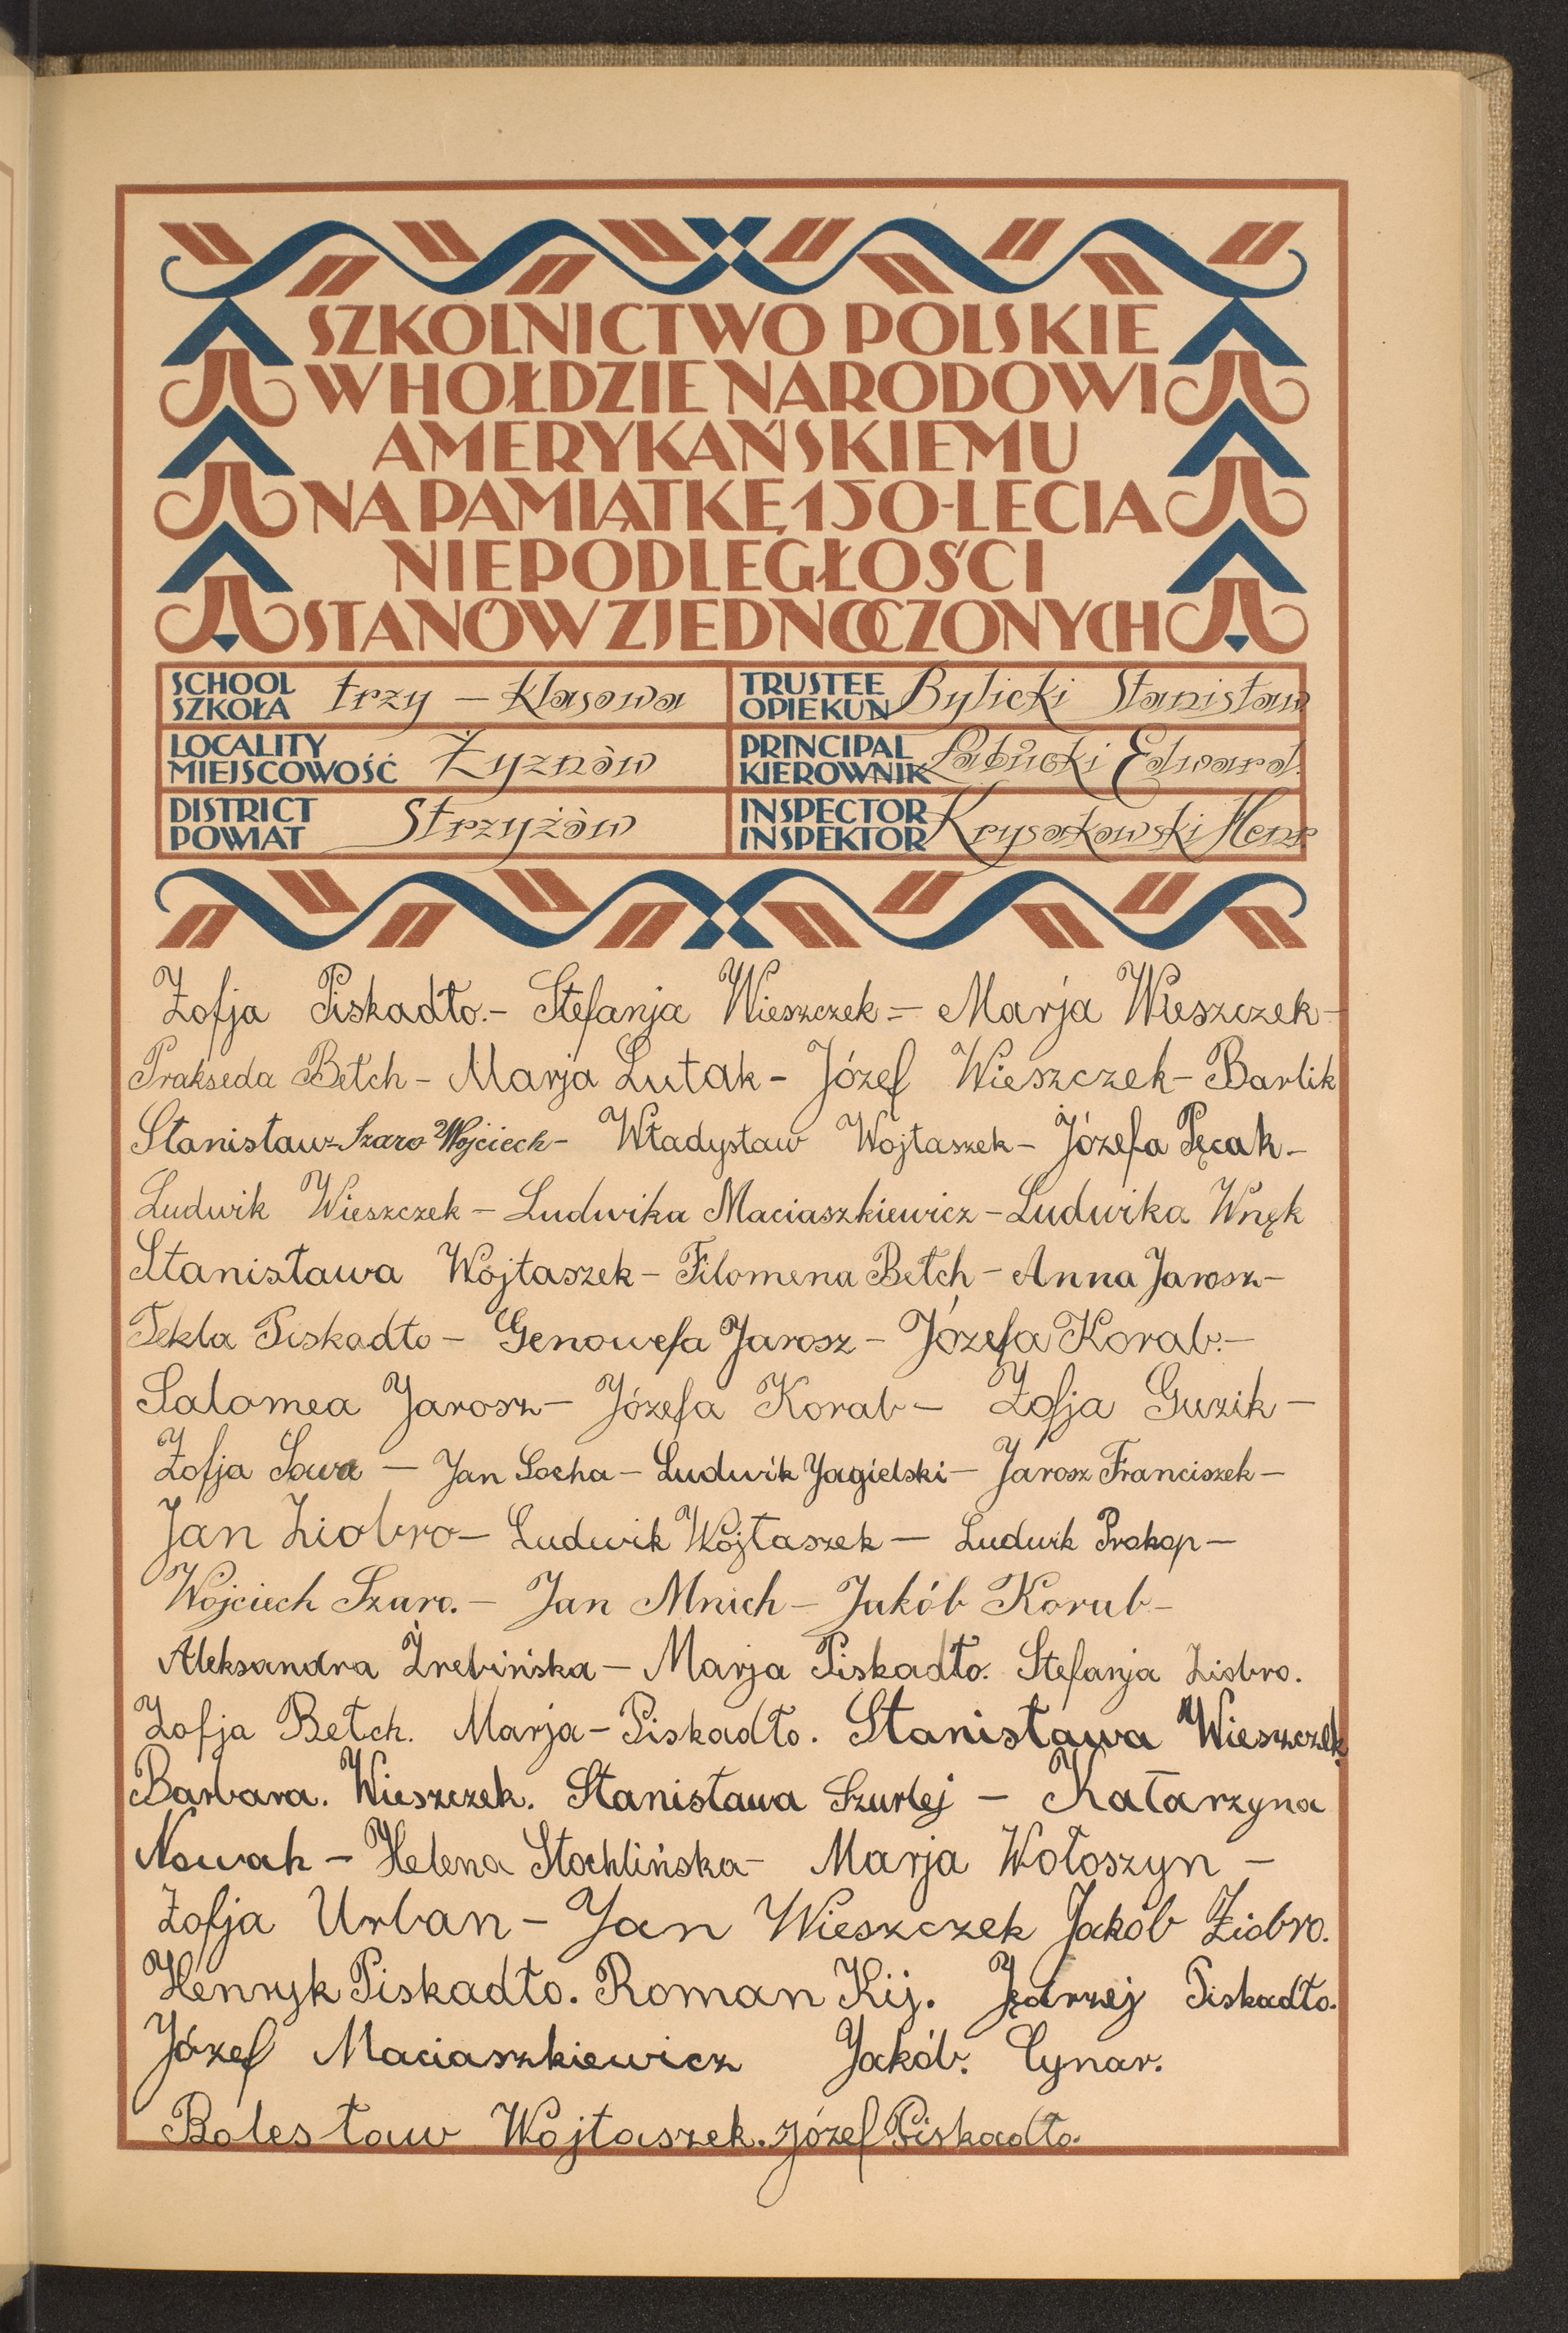 SZKOLNICTWO POLSKIE
W HOŁDZIE NARODOWI
AMERYKAŃSKIEMU
NA PAMIĄTKĘ 150-LECIA
NIEPODLEGŁOŚCI
STANÓW ZJEDNOCZONYCH
SCHOOL
SZKOŁA trzy – klasowa
TRUSTEE
OPIEKUN Bylicki Stanisław
LOCALITY
MIEJSCOWOŚĆ Żyznów
PRINCIPAL
KIEROWNIK Edward
DISTRICT
POWIAT Strzyżów
INSPECTOR
INSPEKTOR Henr
Zofja Piskadło.- Stefanja Wieszczek = Marja Wieszczek-
Prakseda Bełch - Marja Lutak - Józef Wieszczek - Barlik
Stanisław - Szaro Wojciech - Władysław Wojtaszek - Józefa Pęcak.-
Ludwik Wieszczek - Ludwika Maciaszkiewicz - Ludwika Wnęk
Stanisława Wojtaszek - Filomena Bełch - Anna Jarosz-
Tekla Piskadło - Genowefa Jarosz - Józefa Korab.-
Salomea Jarosz - Józefa Korab - Zofja Guzik -
Zofja Sowa - Jan Socha - Ludwik Jagielski - Jarosz Franciszek -
Jan Ziobro - Ludwik Wojtaszek - Ludwik Prokop -
Wojciech Szaro. - Jan Mnich - Jakób Korab -
Aleksandra Źrebińska - Marja Piskadło. Stefanja Ziobro.
Zofja Bełch. Marja - Piskadło. Stanisława Wieszczek
Barbara. Wieszczek. Stanisława Szurlej - Katarzyna
Nowak - Helena Stochlińska - Marja Wołoszyn -
Zofja Urban - Jan Wieszczek Jakób Ziobro.
Henryk Piskadło. Roman Kij. Jędrzej Piskadło.
Józef Maciaszkiewicz Jakób. Cynar.
Bolesław Wojtaszek. Józef Piskadło.